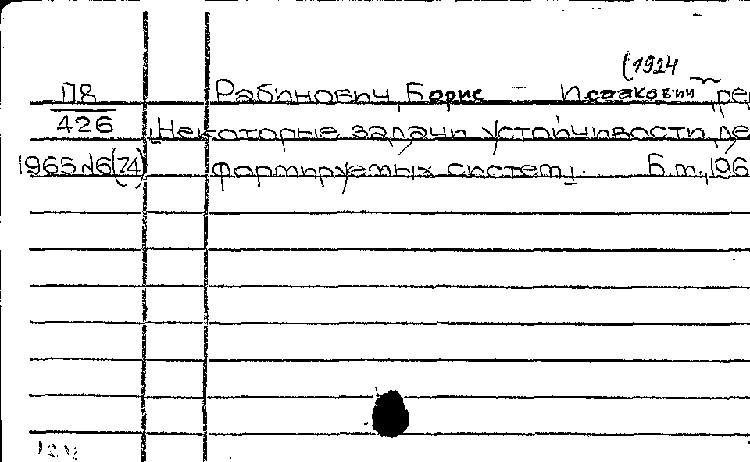 (1924
П8 Рабинович, Борис Исаакович, ре
426 Некоторые задачи устойчивости де
1965 №6(74) формируемых систем. Б.м., 196